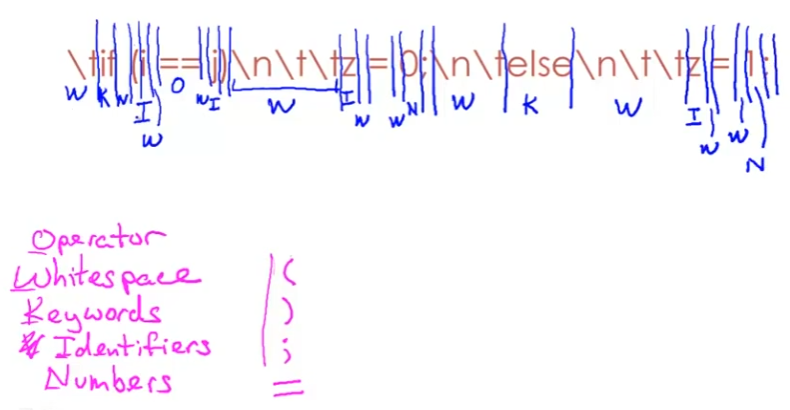 \tif (i == j)\n\t\tz = 0;\n\telse\n\t\tz = 1;
W K W I W O W I W I W W N W K W I W W N
Operator
Whitespace (
Keywords )
Identifiers ;
Numbers =